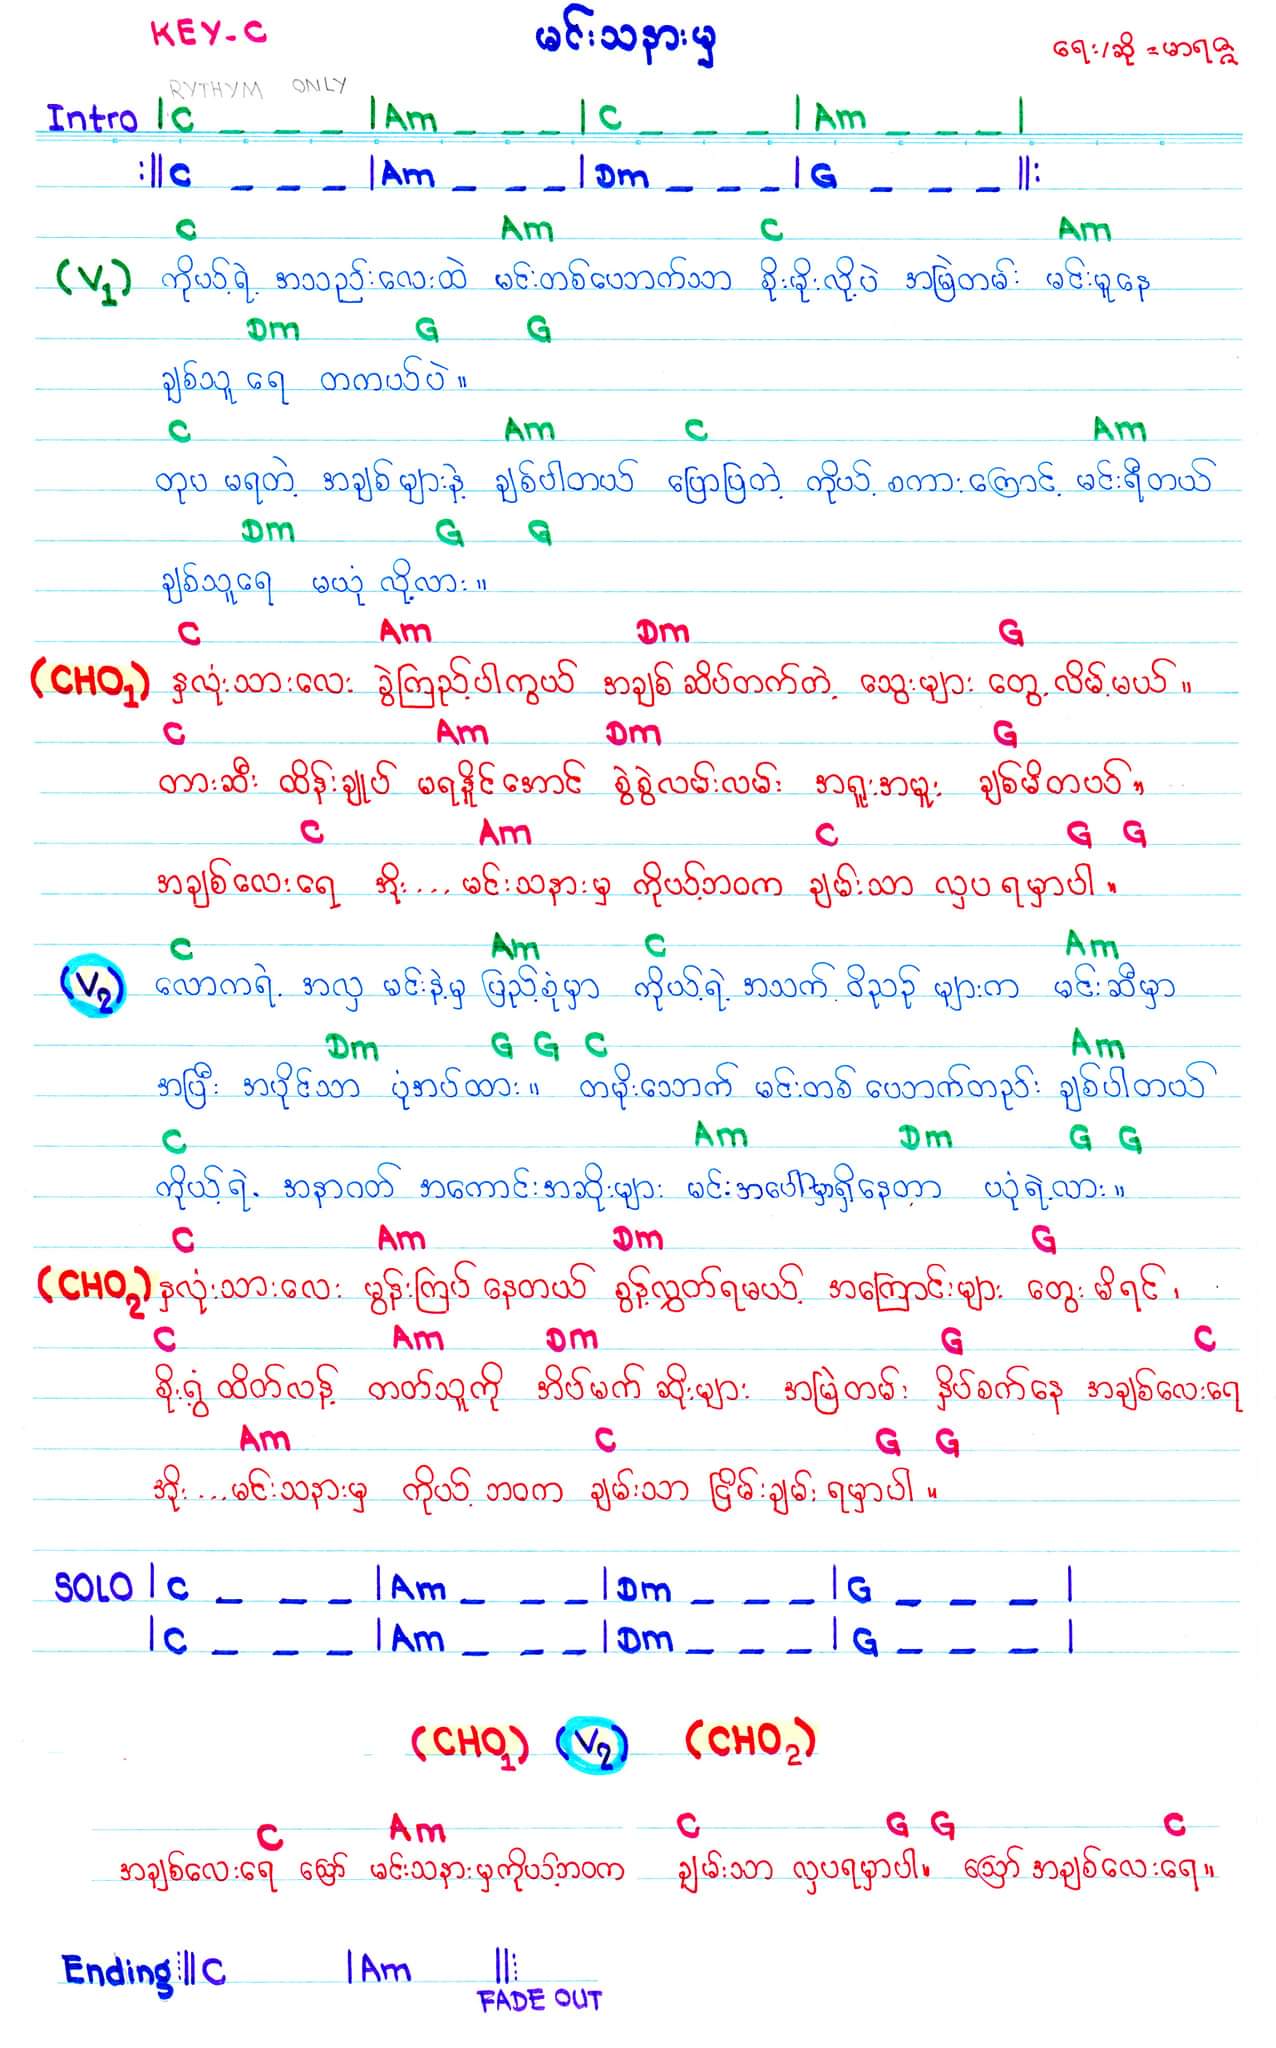 KEY-C မင်းသနားမှ ရေး/ဆို = မာရဇ္ဇ
RYTHYM ONLY
Intro |C _ _ _ |Am _ _ _ |C _ _ _ |Am _ _ _ |
:||C _ _ _ |Am _ _ _ |Dm _ _ _ |G _ _ _ ||:
C Am C Am
(V1) ကိုယ့်ရဲ့ အသည်းလေးထဲ မင်းတစ်ယောက်သာ စိုးမိုးလို့ပဲ အမြဲတမ်း မင်းမူနေ
Dm G G
ချစ်သူ ရေ တကယ်ပဲ။
C Am C Am
တုပ မရတဲ့ အချစ်များနဲ့ ချစ်ပါတယ် ပြောပြတဲ့ ကိုယ့် စကားကြောင့် မင်းရီတယ်
Dm G G
ချစ်သူရေ မယုံ လို့လား။
C Am Dm G
(CHO1) နှလုံးသားလေး ခွဲကြည့်ပါကွယ် အချစ် ဆိပ်တက်တဲ့ သွေးများ တွေ့လိမ့်မယ်။
C Am Dm G
တားဆီး ထိန်းချုပ် မရနိူင်အောင် စွဲစွဲလမ်းလမ်း အရူးအမူး ချစ်မိတယ်။
C Am C G G
အချစ်လေးရေ အိုး... မင်းသနားမှ ကိုယ့်ဘဝက ချမ်းသာ လှပ ရမှာပါ။
C Am C Am
(V2) လောကရဲ့ အလှ မင်းနဲ့မှ ပြည့်စုံမှာ ကိုယ့်ရဲ့ အသက် ဝိညာဉ် များက မင်းဆီမှာ
Dm G G C Am
အပြီး အပိုင်သာ ပုံအပ်ထား။ တမိုးသောက် မင်းတစ်ယောက်တည်း ချစ်ပါတယ်
C Am Dm G G
ကိုယ့်ရဲ့ အနာဂတ် အကောင်းအဆိုးများ မင်းအပေါ်မှာရှိနေတာ ယုံရဲ့လား။
C Am Dm G
(CHO2) နှလုံးသားလေး မွန်းကြပ် နေတယ် စွန့်လွှတ်ရမယ့် အကြောင်းများ တွေးမိရင်၊
C Am Dm G C
စိုးရွံ့ ထိတ်လန့် တတ်သူကို အိပ်မက် ဆိုးများ အမြဲတမ်း နှိပ်စက်နေ အချစ်လေးရေ
Am C G G
အိုး...မင်းသနားမှ ကိုယ့် ဘဝက ချမ်းသာ ငြိမ်းချမ်း ရမှာပါ။
SOLO |C _ _ _ |Am _ _ _ |Dm _ _ _ |G _ _ _ |
|C _ _ _ |Am _ _ _ |Dm _ _ _ |G _ _ _ |
(CHO1) (V2) (CHO2)
C Am C G G C
အချစ်လေးရေ ဪ မင်းသနားမှကိုယ့်ဘဝက ချမ်းသာ လှပရမှာပါ။ ဪ အချစ်လေးရေ။
Ending :||C |Am ||:
FADE OUT